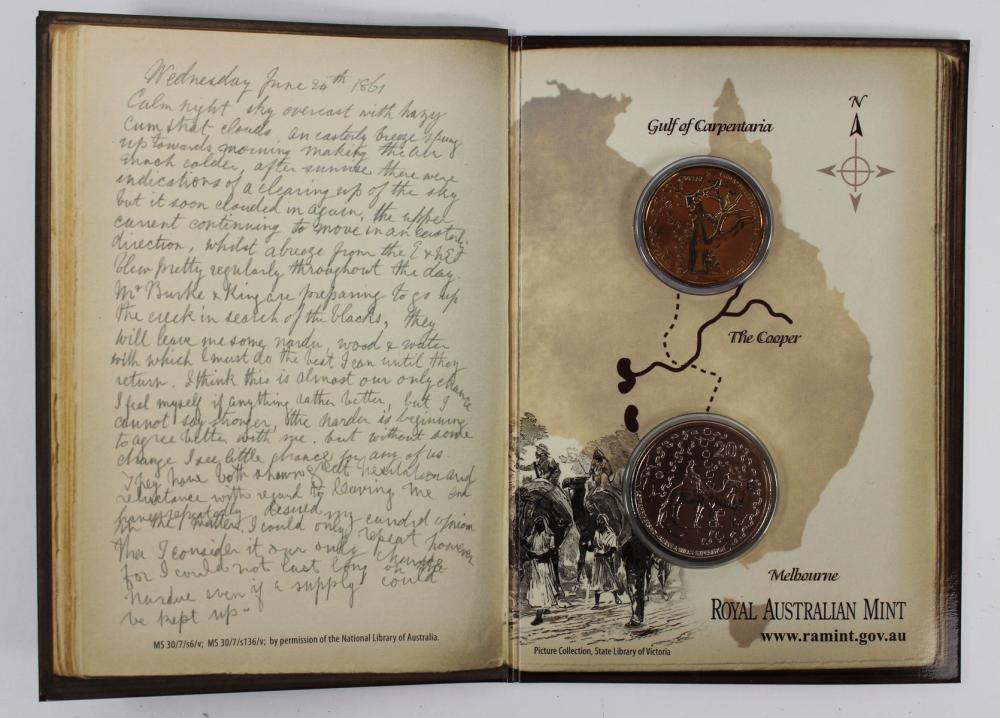 Wednesday June 24th 1861
Calm night sky overcast with hazy
cum strat clouds. An easterly breeze sprung
up towards morning making the air
much colder, after sunrise there were
indications of a clearing up of the sky
but it soon clouded in again, the upper
current continuing to move in an easterly
direction, whilst a breeze from the E & NE
blew pretty regularly throughout the day.
Mr Burke & King are preparing to go up
the creek in search of the blacks, they
will leave me some nardu, wood & water
with which I must do the best I can until they
return. I think this is almost our only chance
I feel myself if anything rather better, but I
cannot say stronger, the nardu is beginning
to agree better with me. but without some
change I see little chance for any of us
They have both shewn great hesitation and
reluctance with regard to leaving me and
have repeatedly desired my candid opinion
in the matter. I could only repeat however
that I consider it our only chance
for I could not last long on the
nardue even if a supply could
be kept up -
MS 30/7/s6/v; MS 30/7/s136/v; by permission of the National Library of Australia.
Gulf of Carpentaria
N
The Cooper
20
Melbourne
ROYAL AUSTRALIAN MINT
www.ramint.gov.au
Picture Collection, State Library of Victoria